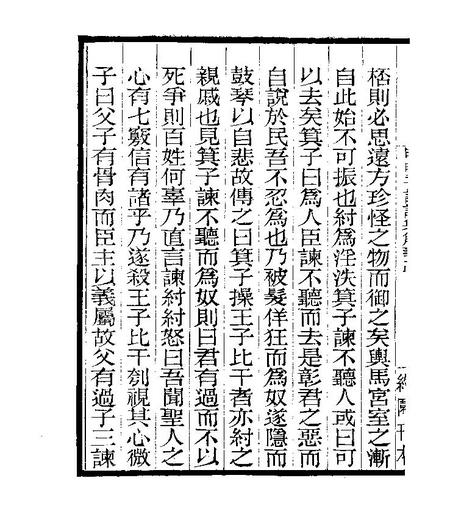 桮則必思遠方珍怪之物而御之矣輿馬宮室之漸
自此始不可振也紂爲淫泆箕子諫不聽人或曰可
以去矣箕子曰爲人臣諫不聽而去是彰君之惡而
自說於民吾不忍爲也乃被髮佯狂而爲奴遂隱而
鼓琴以自悲故傳之曰箕子操王子比干者亦紂之
親戚也見箕子諫不聽而爲奴則曰君有過而不以
死爭則百姓何辜乃直言諫紂紂怒曰吾聞聖人之
心有七竅信有諸乎乃遂殺王子比干刳視其心微
子曰父子有骨肉而臣主以義屬故父有過子三諫